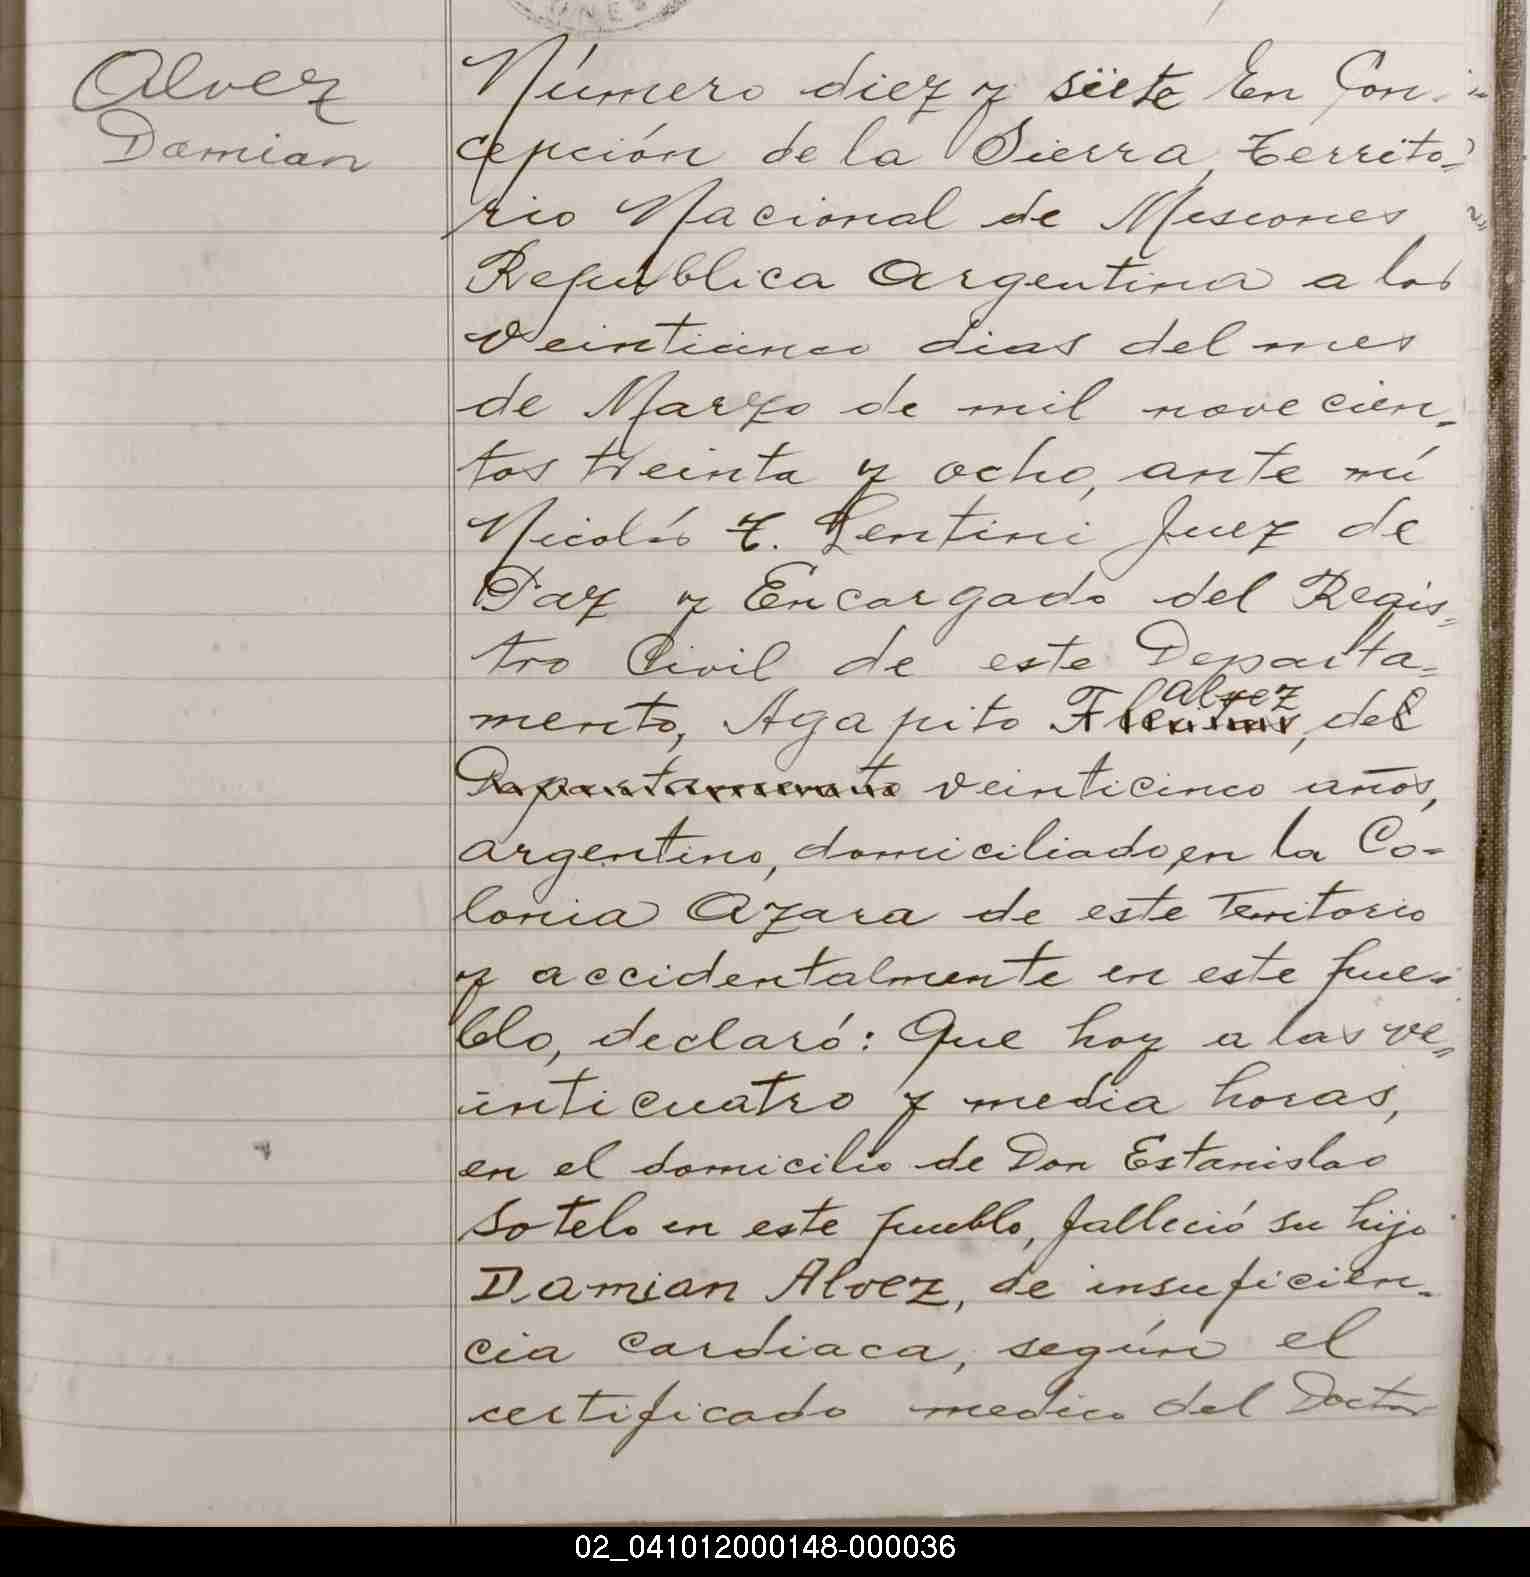 UNES
Alvez
Damian
Número diez y siete En Con-
cepción de la Sierra, Territo-
rio Nacional de Misiones
Republica Argentina a los
veinticinco dias del mes
de Marzo de mil novecien-
tos treinta y ocho, ante mí
Nicolás T. Lentini Juez de
Paz y Encargado del Regis-
tro Civil de este Departa-
alvez
mento, Agapito, de
Departamento veinticinco años,
argentino, domiciliado, en la Co-
lonia Azara de este Territorio
y accidentalmente en este pue-
blo, declaró: Que hoy a las ve-
inticuatro y media horas,
en el domicilio de Don Estanislao
Sotelo en este pueblo, falleció su hijo
Damian Alvez, de insuficien-
cia cardiaca, según el
certificado medico del Doctor
02_041012000148-000036